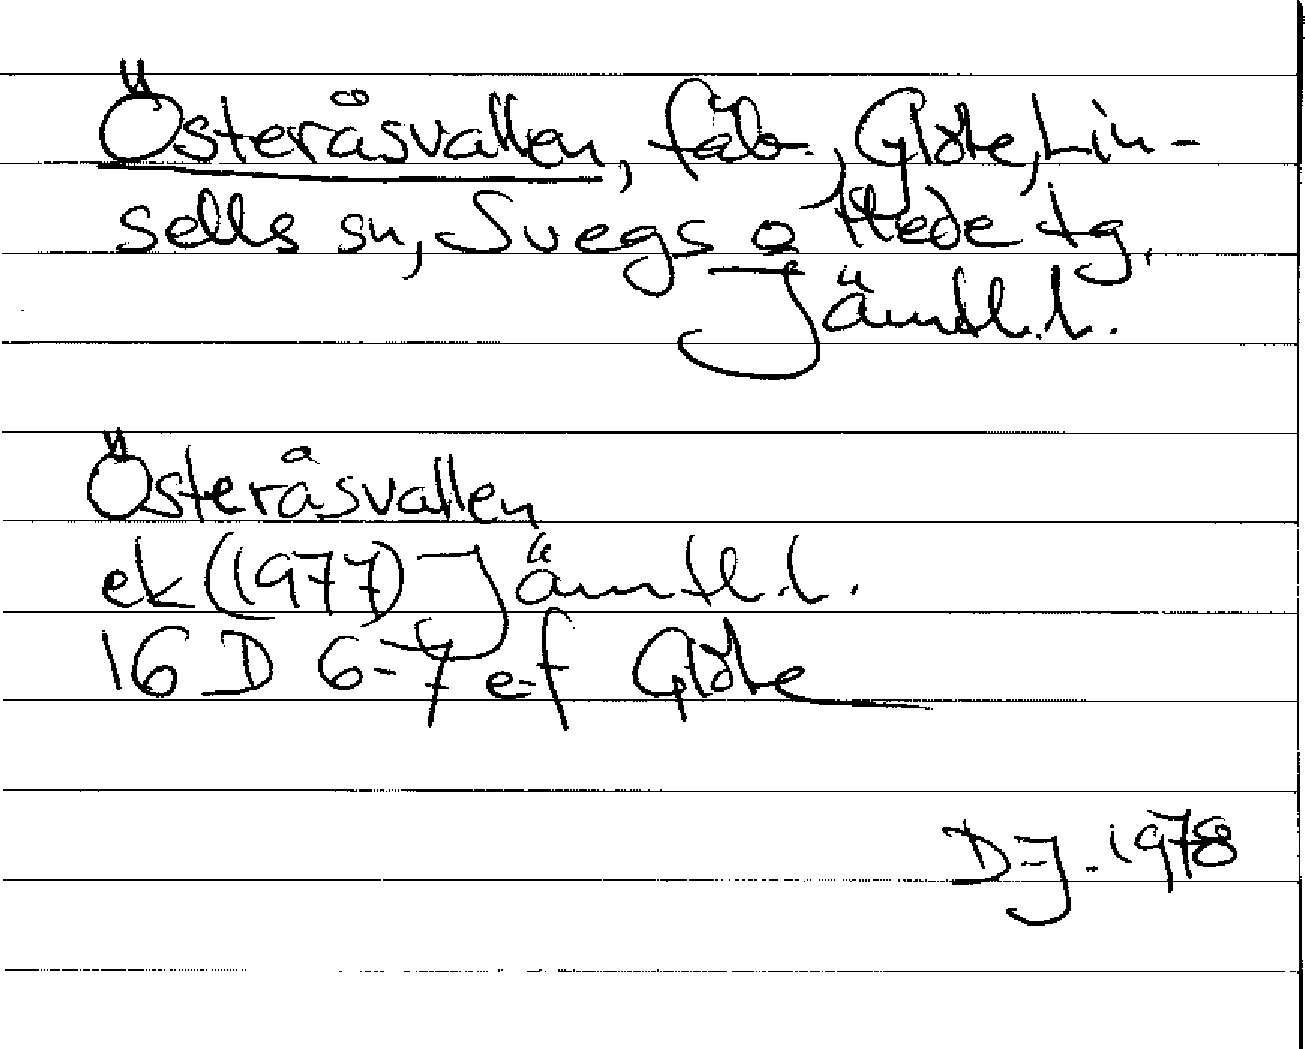 Österåsvallen, fäb., Glöte, Lin-
sells sn, Svegs o Hede tg,
Jämtl.l.
Österåsvallen
ek (1977) Jämtl.l.
16 D 6-7 e-f Glöte
D-J. 1978